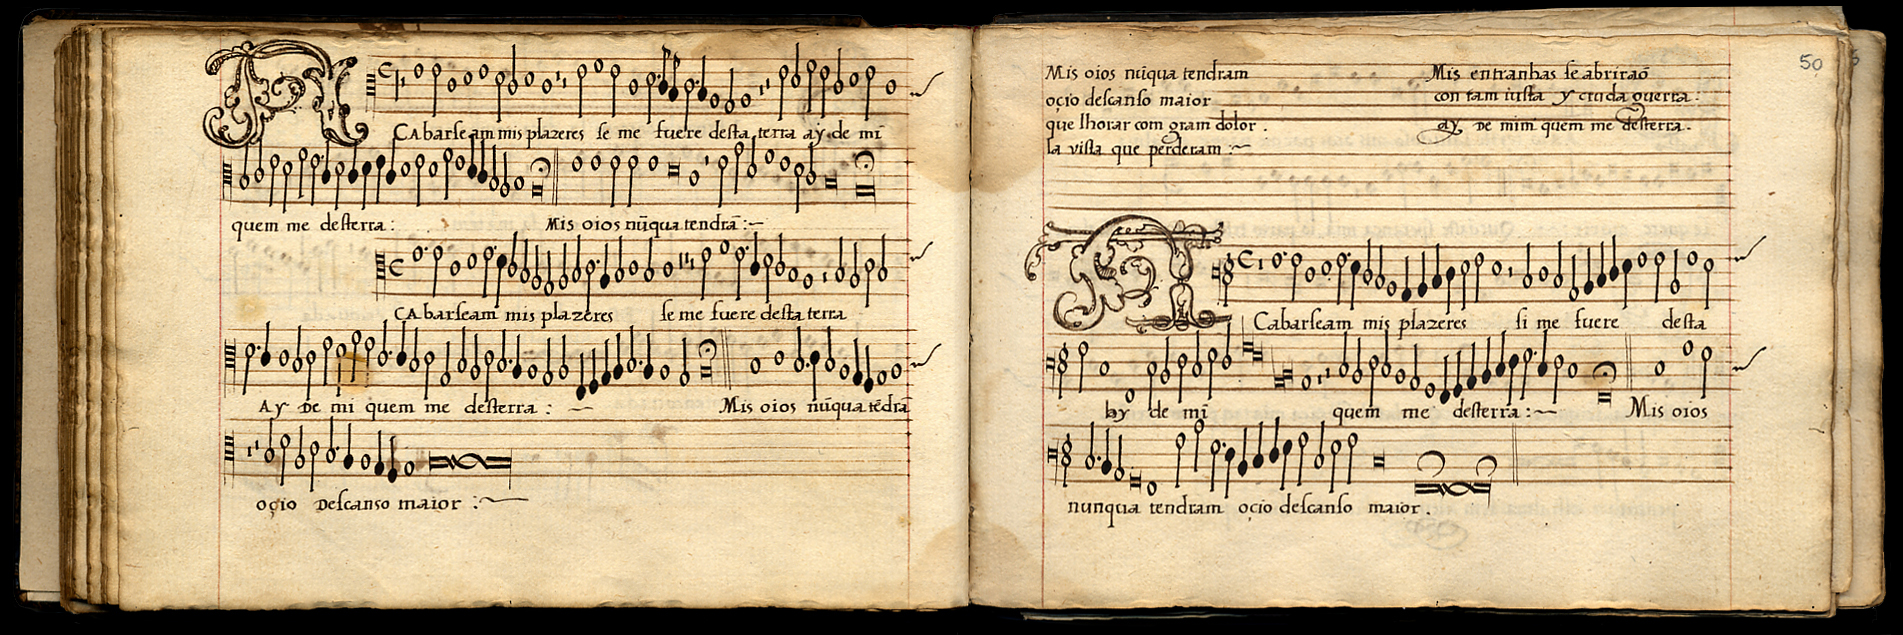 A
CAbarseam mis plazeres se me fuere desta terra ay de mī
quem me desterra :
Mis oios nūqua tendrā :~
CAbarseam mis plazeres se me fuere desta terra
Ay De mi quem me desterra : ~
Mis oios nūqua tēdrā
oçio Descanso maior :~
50
Mis oios nūqua tendram
oçio descanso maior
que lhorar com gram dolor .
la vista que perderam :~
Mis entranhas se abriraō
con tam iusta y cruda guerra .
ay De mim quem me desterra .
A
Cabarseam mis plazeres si me fuere desta
ay de mī quem me desterra :~ Mis oios
nunqua tendram oçio descanso maior .